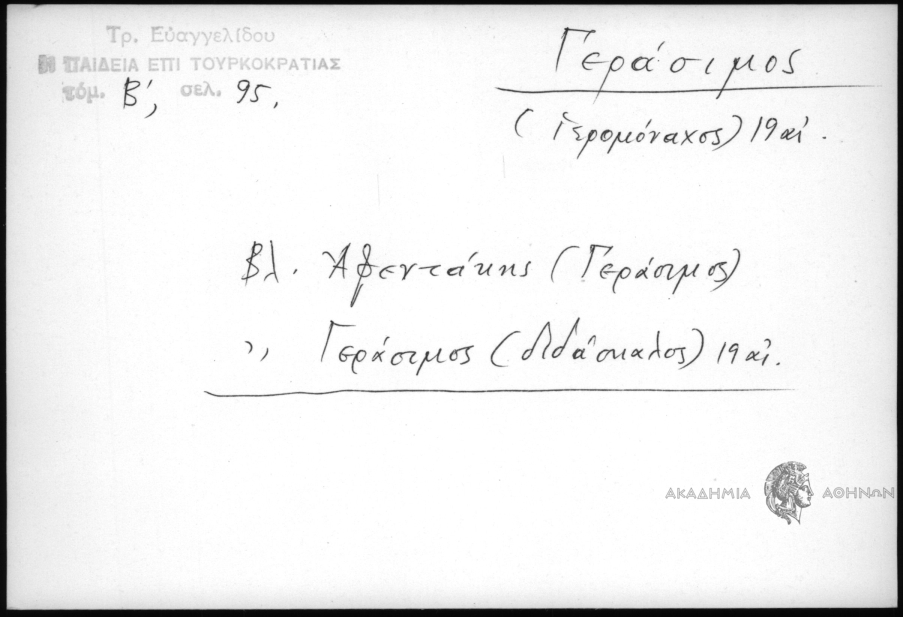 Τρ. Εὐαγγελίδου
Η ΠΑΙΔΕΙΑ ΕΠΙ ΤΟΥΡΚΟΚΡΑΤΙΑΣ
τόμ. Β', σελ. 95.
Γεράσιμος
(Ἱερομόναχος) 19 αἰ.
Βλ. Ἀφεντάκης (Γεράσιμος)
,, Γεράσιμος (διδάσκαλος) 19 αἰ.
ΑΚΑΔΗΜΙΑ ΑΘΗΝΩΝ